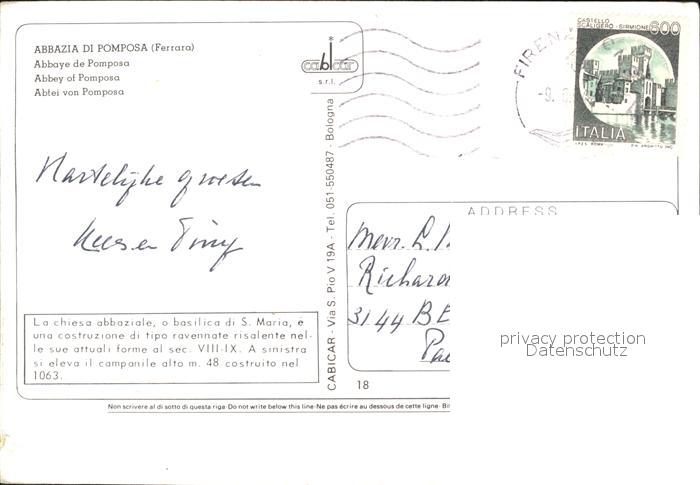 ABBAZIA DI POMPOSA (Ferrara)
Abbaye de Pomposa
Abbey of Pomposa
Abtei von Pomposa
cabicar
s.r.l.
FIREN
CASTELLO
SCALIGERO - SIRMIONE
600
ITALIA
Hartelijke groeten
Kees en Tiny
CABICAR - Via S. Pio V 19A - Tel. 051-550487 - Bologna
ADDRESS
Mevr. L.
Richard
3144 BE
La chiesa abbaziale, o basilica di S. Maria, è
una costruzione di tipo ravennate risalente nel-
le sue attuali forme al sec. VIII-IX. A sinistra
si eleva il campanile alto m. 48 costruito nel
1063.
18
privacy protection
Datenschutz
Non scrivere al di sotto di questa riga-Do not write below this line-Ne pas écrire au dessous de cette ligne-